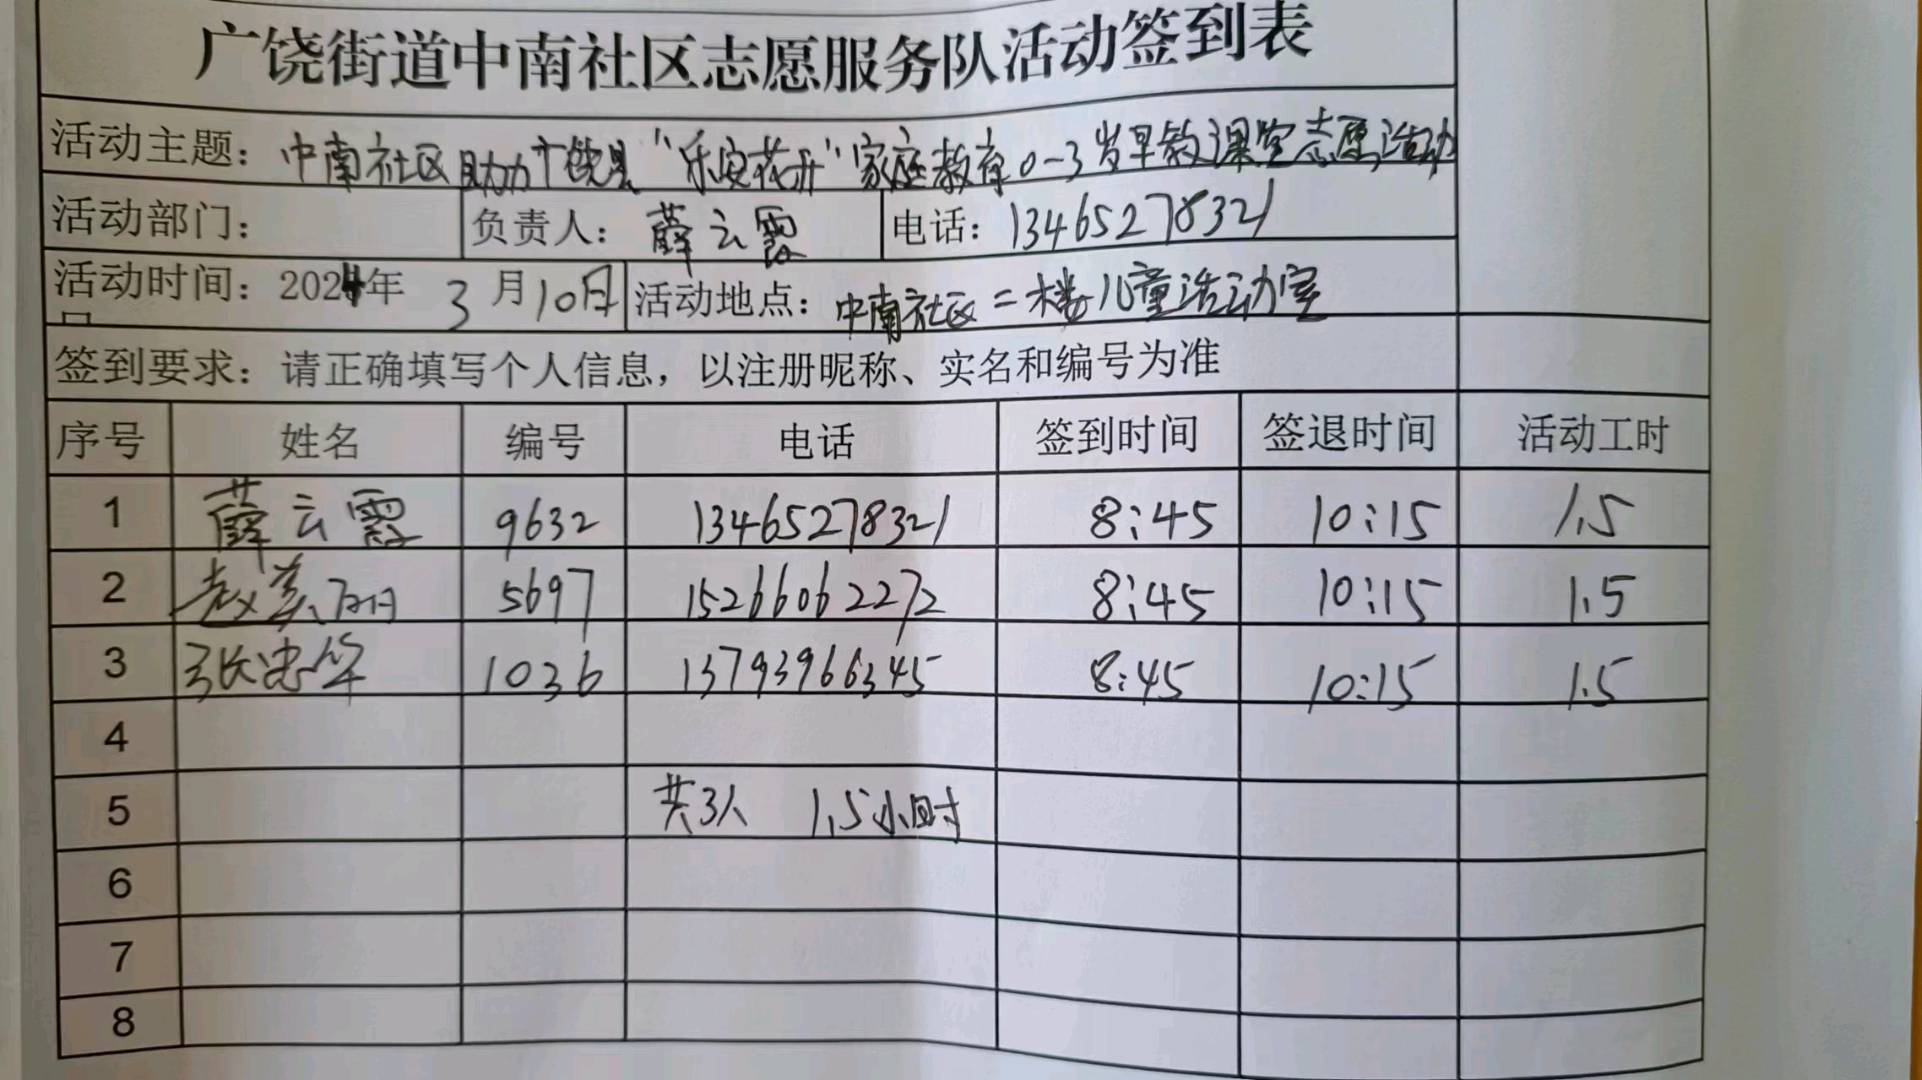 广饶街道中南社区志愿服务队活动签到表
活动主题：中南社区助力广饶县“乐安花开”家庭教育0-3岁早教课堂志愿活动
活动部门： 负责人：薛云霞 电话：13465278321
活动时间：2024年3月10日 活动地点：中南社区二楼儿童活动室
签到要求：请正确填写个人信息，以注册昵称、实名和编号为准
序号 姓名 编号 电话 签到时间 签退时间 活动工时
1 薛云霞 9632 13465278321 8:45 10:15 1.5
2 赵美丽 5697 15266062272 8:45 10:15 1.5
3 张忠华 1036 13793966345 8:45 10:15 1.5
4
5 共3人 1.5小时
6
7
8